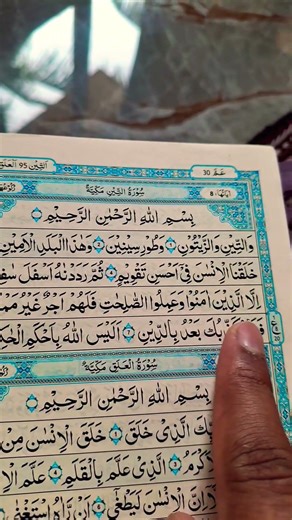 التّين 95 العلق
عمّ 30
سُوْرَةُ التِّيْنِ مَكِّيَّةٌ
اٰيَاتُهَا 8
بِسْمِ اللّٰهِ الرَّحْمٰنِ الرَّحِيْمِ
وَالتِّيْنِ وَالزَّيْتُوْنِ ۝١ وَطُوْرِ سِيْنِيْنَ ۝٢ وَهٰذَا الْبَلَدِ الْاَمِيْنِ
خَلَقْنَا الْاِنْسٰنَ فِيْٓ اَحْسَنِ تَقْوِيْمٍ ۝٤ ثُمَّ رَدَدْنٰهُ اَسْفَلَ
اِلَّا الَّذِيْنَ اٰمَنُوْا وَعَمِلُوا الصّٰلِحٰتِ فَلَهُمْ اَجْرٌ غَيْرُ
بَعْدُ بِالدِّيْنِ ۝٧ اَلَيْسَ اللّٰهُ بِاَحْكَمِ
سُوْرَةُ الْعَلَقِ مَكِّيَّةٌ
بِسْمِ اللّٰهِ الرَّحْمٰنِ الرَّحِيْمِ
الَّذِيْ خَلَقَ ۝١ خَلَقَ الْاِنْسٰنَ مِنْ
الَّذِيْ عَلَّمَ بِالْقَلَمِ ۝٤ عَلَّمَ
اِنَّ الْاِنْسٰنَ لَيَطْغٰٓى ۝٦ اَنْ رَّاٰهُ